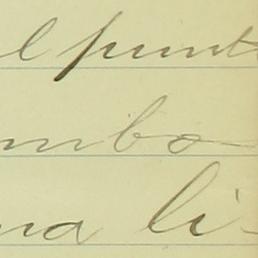 l punt
mbo
na li-